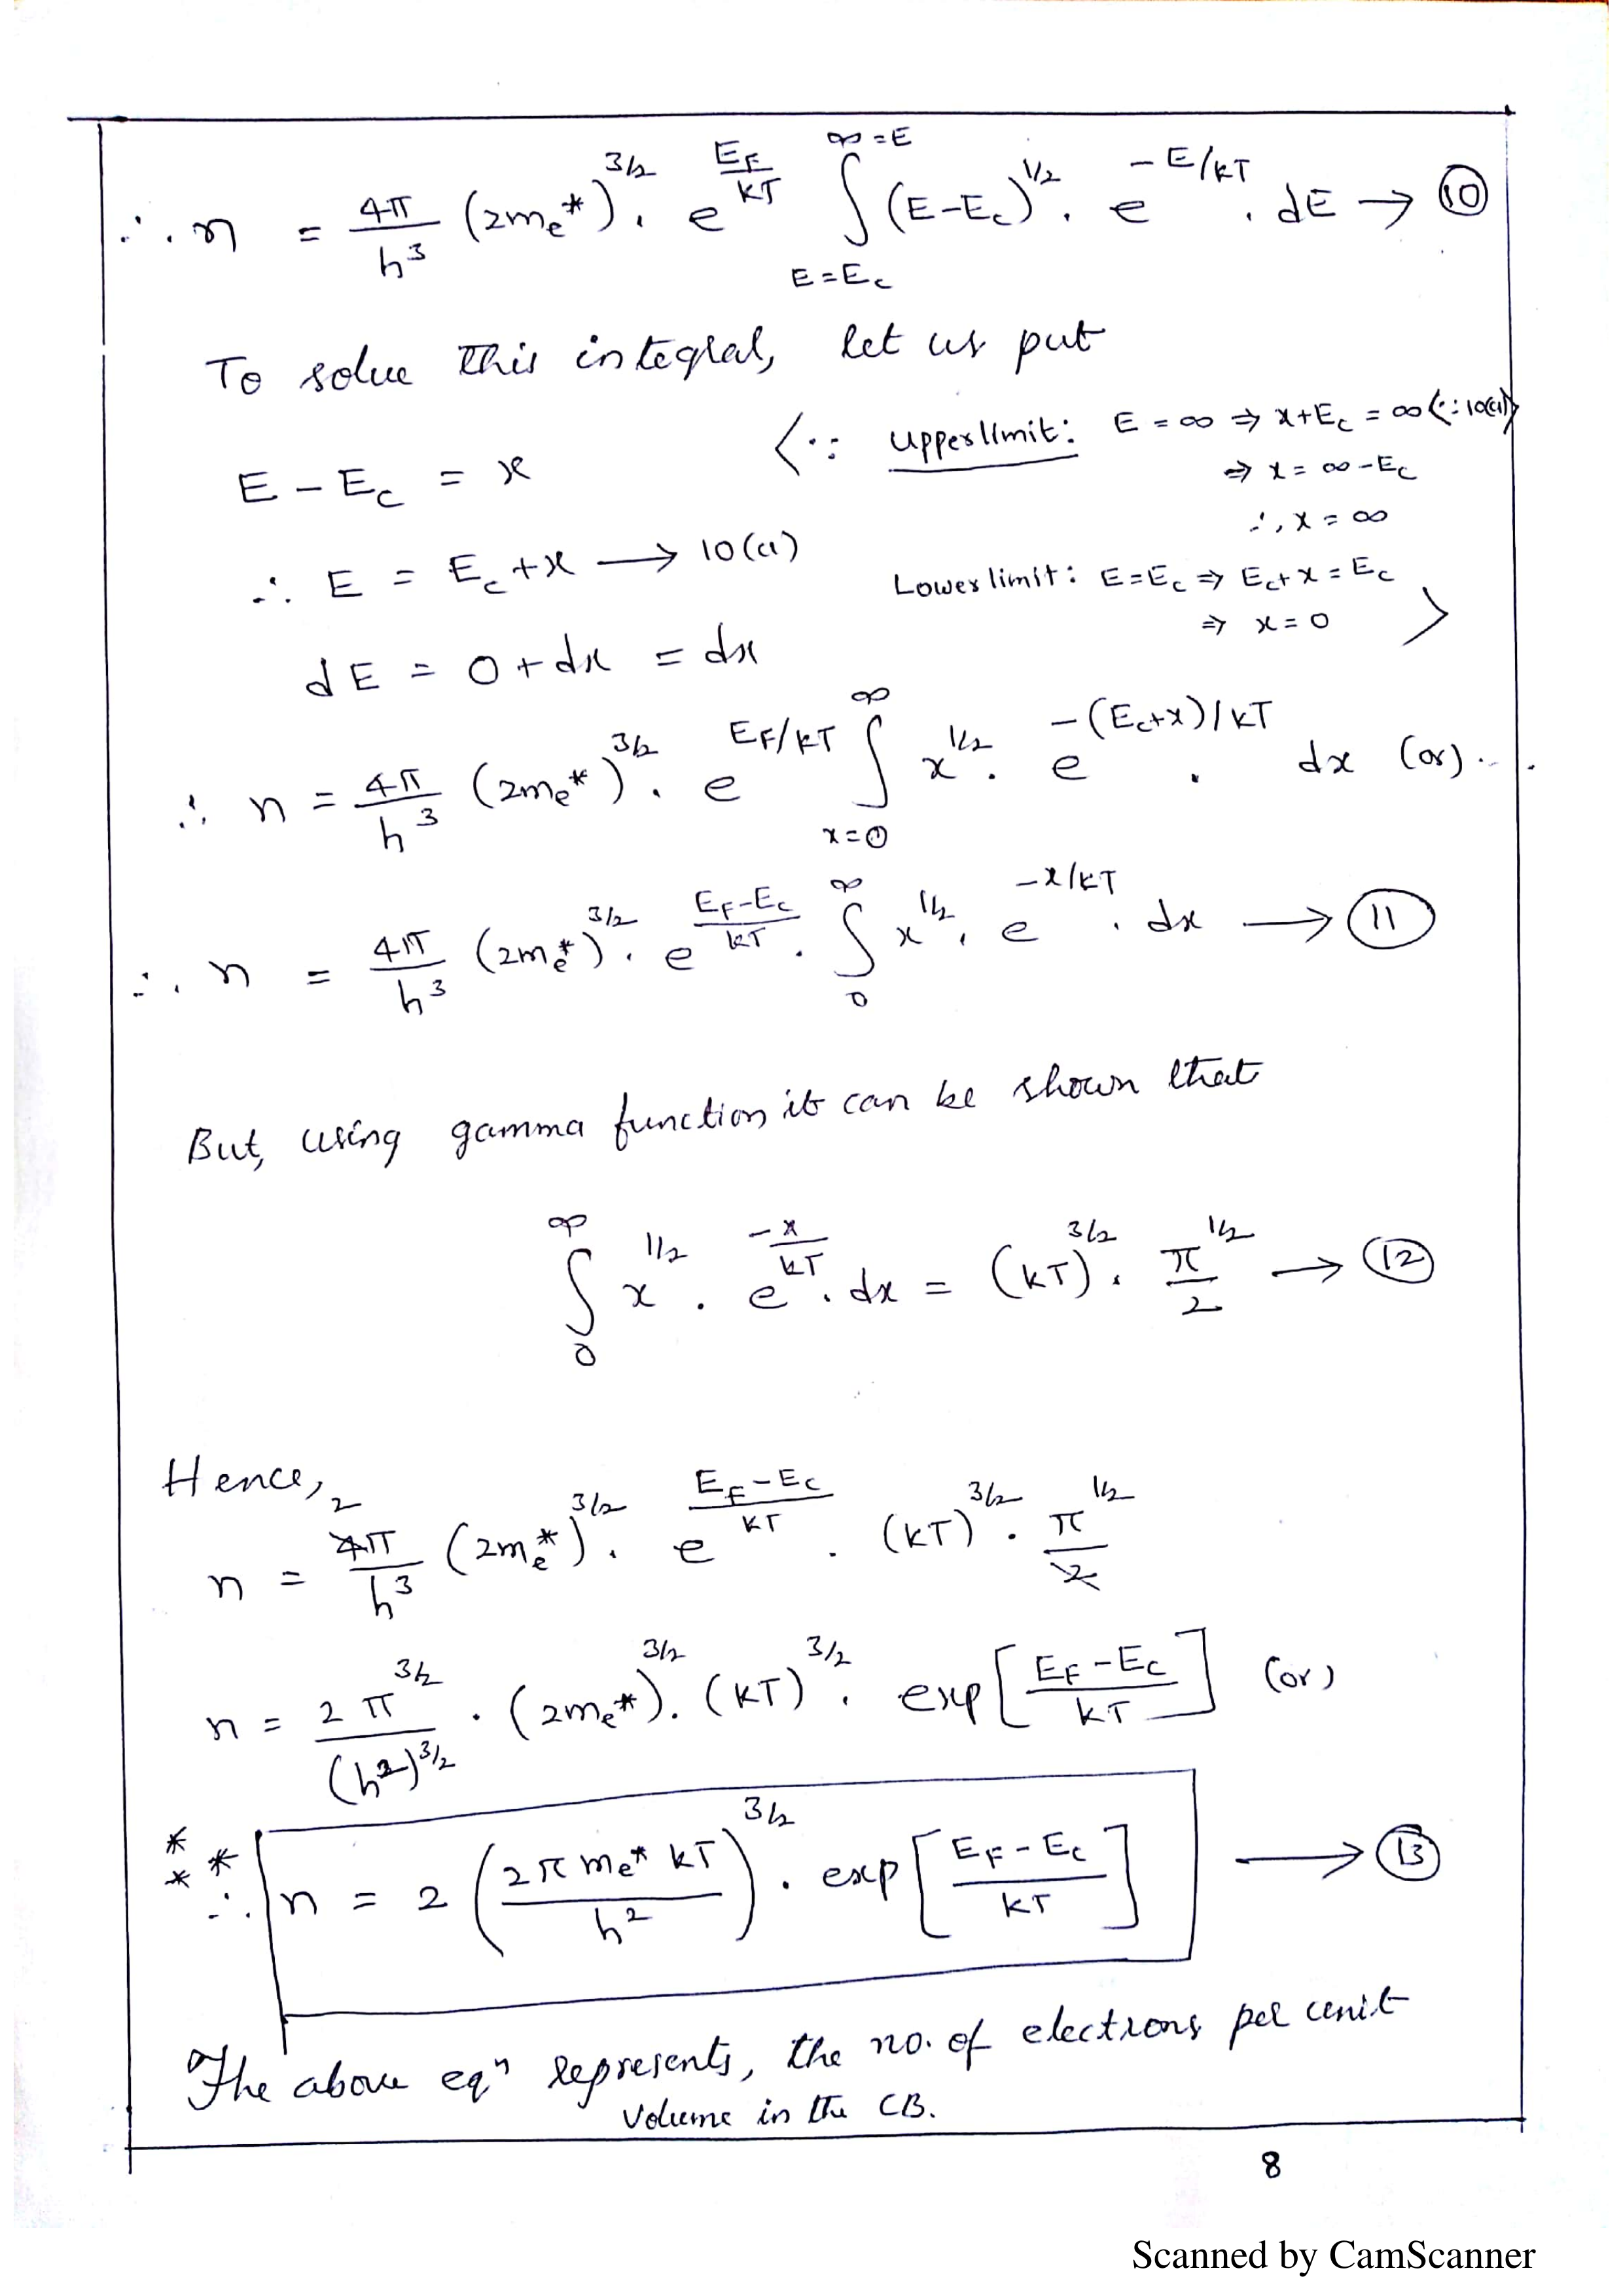 ∴ n = 4π/h³ (2me*)^3/2 . e^(EF/kT) ∫_{E=Ec}^{∞=E} (E-Ec)^1/2 . e^(-E/kT) . dE → (10)
To solve this integral, let us put
E - Ec = x
<∵ Upper limit: E = ∞ ⇒ x+Ec = ∞ (∵ 10(a))
⇒ x = ∞ - Ec
∴, x = ∞
∴ E = Ec + x → 10(a)
Lower limit: E = Ec ⇒ Ec + x = Ec
⇒ x = 0 >
dE = 0 + dx = dx
∴ n = 4π/h³ (2me*)^3/2 . e^(EF/kT) ∫_{x=0}^{∞} x^1/2 . e^(-(Ec+x)/kT) . dx (or)...
∴ n = 4π/h³ (2me*)^3/2 . e^((EF-Ec)/kT) . ∫_0^∞ x^1/2 . e^(-x/kT) . dx → (11)
But, using gamma function it can be shown that
∫_0^∞ x^1/2 . e^(-x/kT) . dx = (kT)^3/2 . π^1/2/2 → (12)
Hence,
2
n = 4π/h³ (2me*)^3/2 . e^((EF-Ec)/kT) . (kT)^3/2 . π^1/2/2
n = 2π^3/2/(h²)^3/2 . (2me*)^3/2 . (kT)^3/2 . exp[(EF-Ec)/kT] (or)
* * *
∴ n = 2 (2π me* kT/h²)^3/2 . exp[(EF-Ec)/kT] → (13)
The above eqⁿ represents, the no. of electrons per unit
Volume in the CB.
8
Scanned by CamScanner